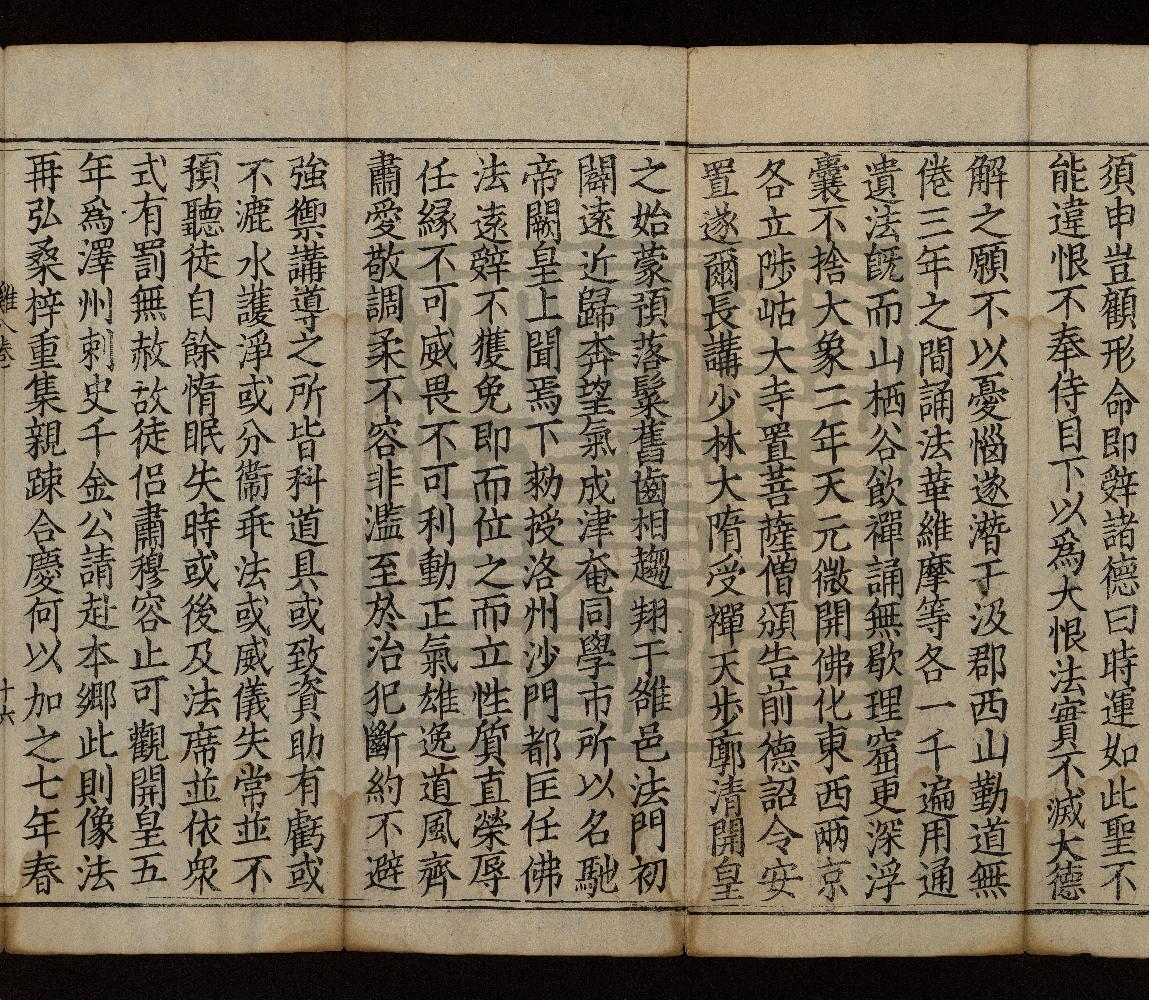 須申豈顧形命即辤諸德曰時運如此聖不
能違恨不奉侍目下以爲大恨法實不滅大德
解之願不以憂惱遂潛于汲郡西山勤道無
倦三年之間誦法華維摩等各一千遍用通
遺法既而山栖谷飲禪誦無歇理窟更深浮
囊不捨大象二年天元微開佛化東西兩京
各立陟岵大寺置菩薩僧頒告前德詔令安
置遂爾長講少林大隋受禪天步廓清開皇
之始蒙預落髮舊齒相趨翔于雒邑法門初
闢遠近歸奔望氣成津奄同學市所以名馳
帝闕皇上聞焉下勑授洛州沙門都匡任佛
法遠辤不獲免即而位之而立性質直榮辱
任緣不可威畏不可利動正氣雄逸道風齊
肅愛敬調柔不容非濫至於治犯斷約不避
強禦講導之所皆科道具或致資助有虧或
不漉水護淨或分衞乖法或威儀失常並不
預聽徒自餘惰眠失時或後及法席並依衆
式有罰無赦故徒侶肅穆容止可觀開皇五
年爲澤州刺史千金公請赴本鄉此則像法
再弘桑梓重集親踈合慶何以加之七年春
十六